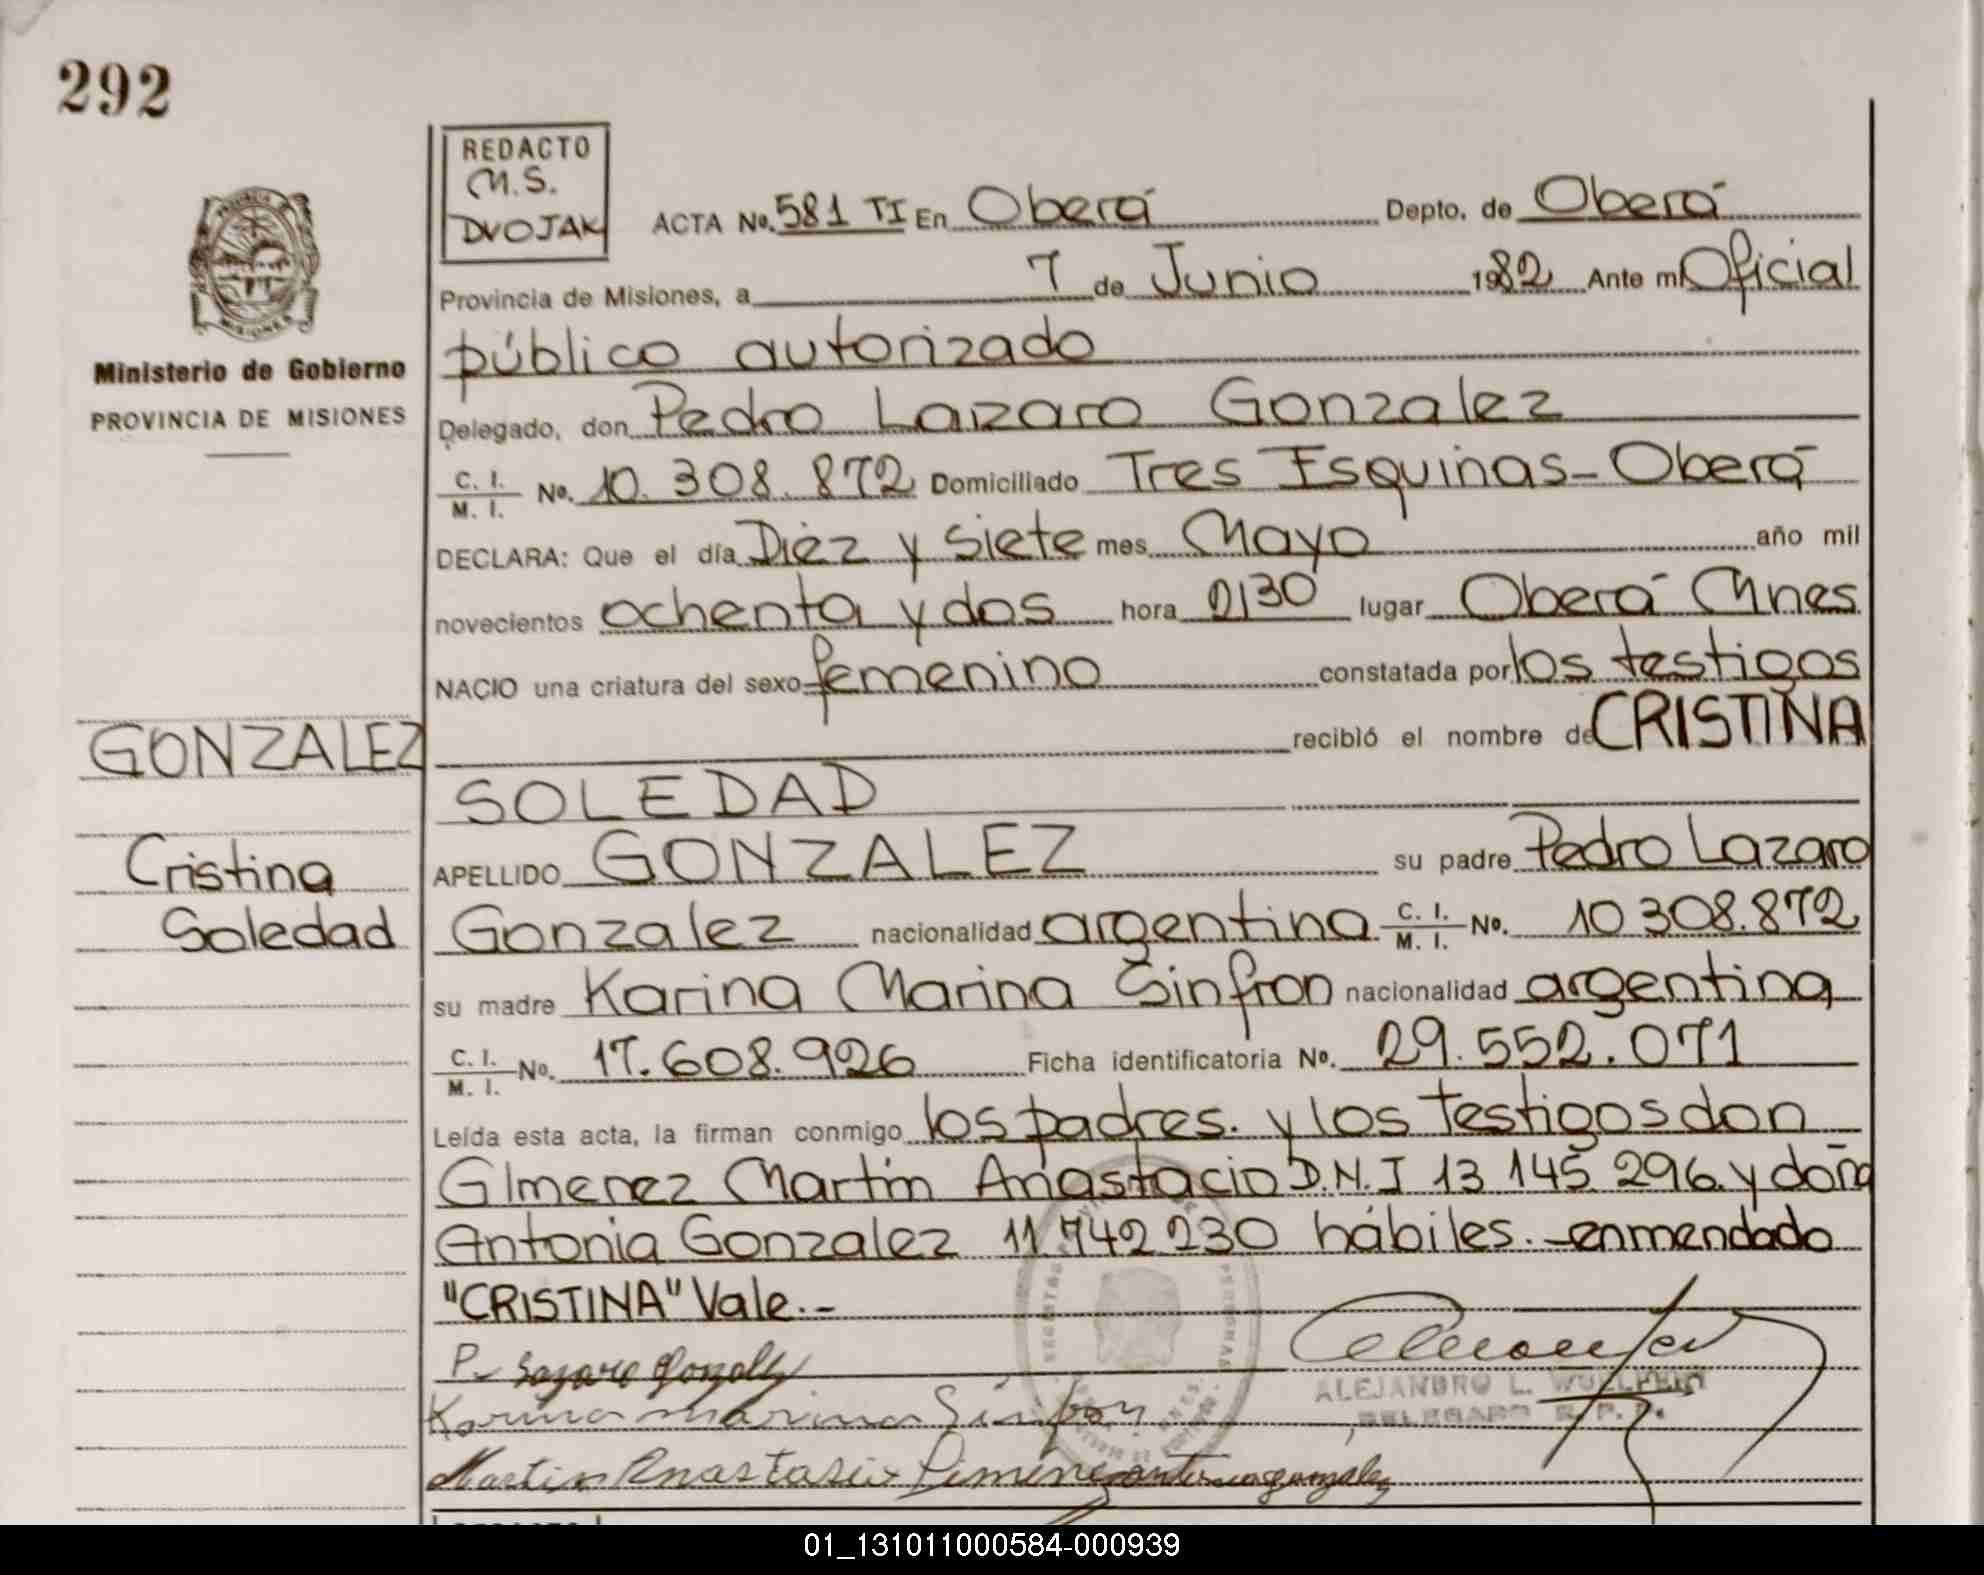 292
REDACTO
M.S.
DVOJAK
ACTA No. 581 TI En Oberá Depto. de Oberá
Provincia de Misiones, a 7 de Junio 1982 Ante mí Oficial
público autorizado
Ministerio de Gobierno
PROVINCIA DE MISIONES
Delegado, don Pedro Lazaro Gonzalez
C. I. M. I. No. 10.308.872 Domiciliado Tres Esquinas - Oberá
DECLARA: Que el día Diez y siete mes Mayo año mil
novecientos ochenta y dos hora 2,30 lugar Oberá Mnes
NACIO una criatura del sexo femenino constatada por los testigos
GONZALEZ
recibió el nombre de CRISTINA
SOLEDAD
Cristina
Soledad
APELLIDO GONZALEZ su padre Pedro Lazaro
Gonzalez nacionalidad argentina C. I. M. I. No. 10 308.872
su madre Karina Marina Sinfron nacionalidad argentina
C. I. M. I. No. 17.608.926 Ficha identificatoria No. 29.552.071
Leída esta acta, la firman conmigo los padres. y los testigos don
Gimenez Martín Anastacio D.N.I 13 145 296. y doña
Antonia Gonzalez 11 742 230 hábiles. - enmendado
"CRISTINA" Vale.-
P. Lazaro Gonzalez
Karina Marina Sinfron
ALEJANDRO L.
DELEGADO R. P.
Martin Anastasio Gimenez antonia gonzalez
01_131011000584-000939